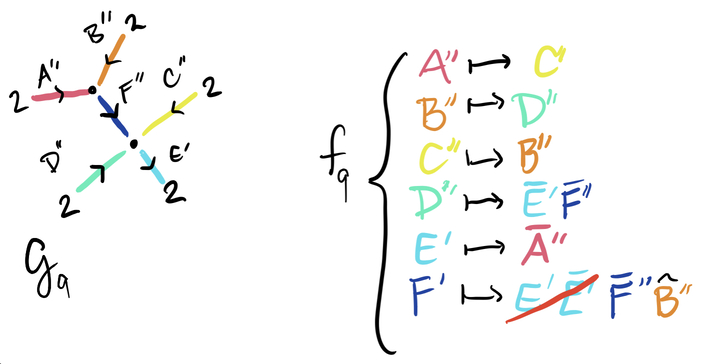 B'' 2
A'' F'' C'' 2
2
D'' E'
2 2
G₉
f₉
A'' ↦ C''
B'' ↦ D''
C'' ↦ B''
D'' ↦ E̅'F̅''
E' ↦ A̅''
F' ↦ E'E̅' F̅''B̂''